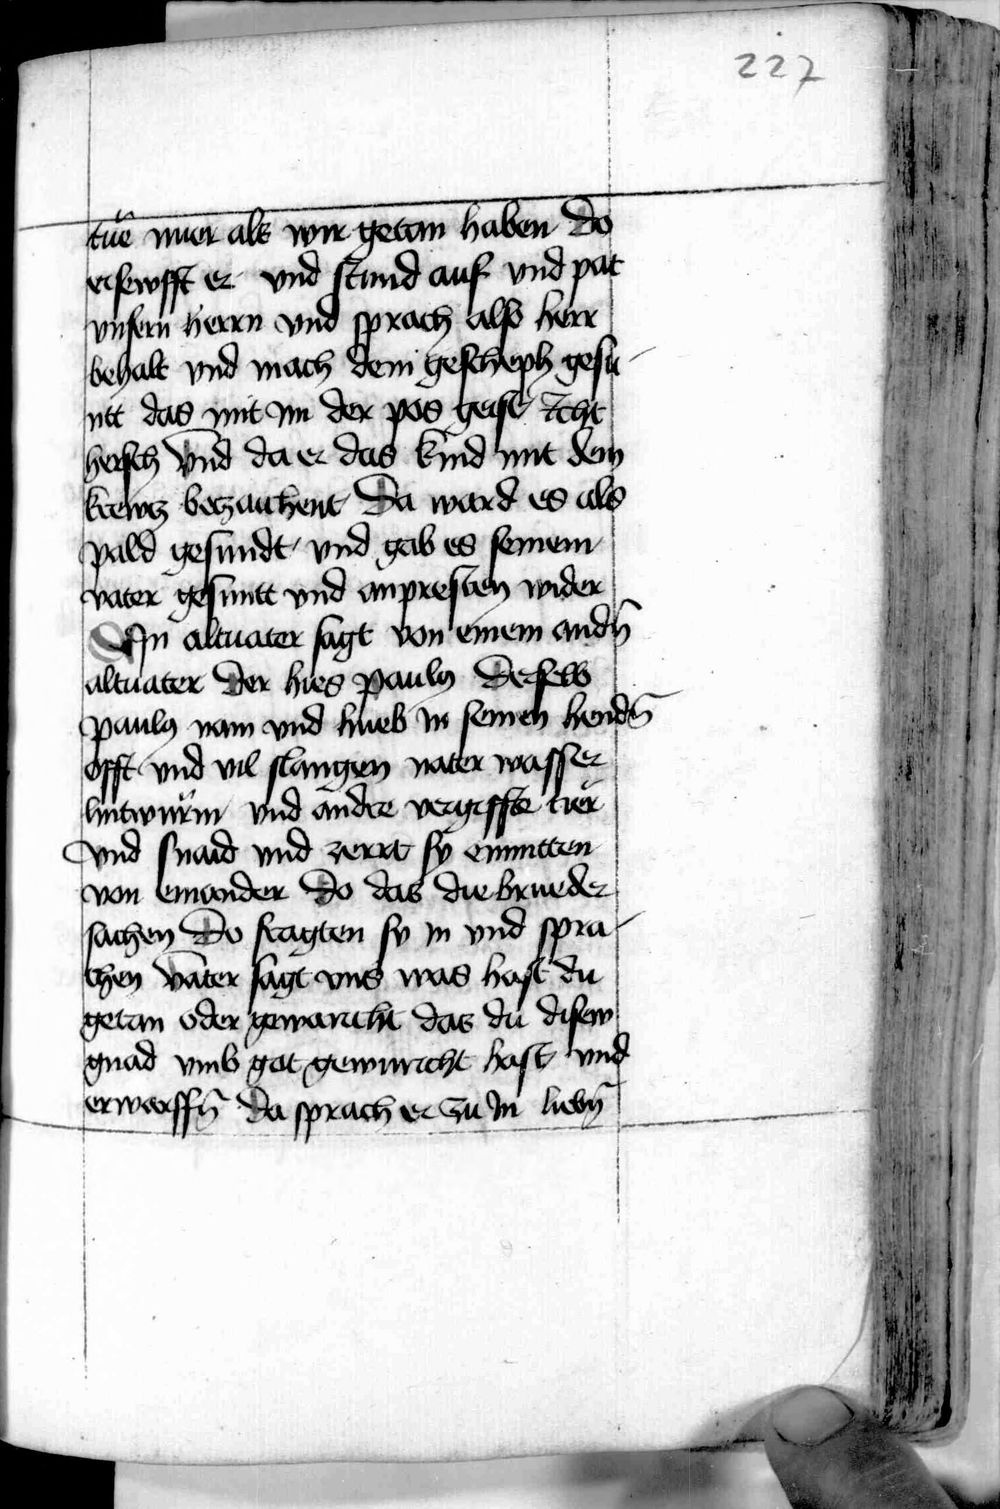 227
tuͤe nuer als wir getan haben Do
ersewfft er und stund auf vnd pat
vnsern herrn vnd sprach also herr
behalt vnd mach dem gescheph gesu
ntt das mit im der pos geist icht
hersch Vnd da er das kind mit dem
krewtz betzaichent Da ward es als
pald gesundt vnd gab es seinem
vater gesuntt vnd anpresten wider
Ein altuater sagt von einem andn̄
altuater Der hies paulus Derselb
paulus nam vnd hueb in seinen hendn̄
offt vnd vil slangen nater wasser
lintwuͤrm vnd andre vergiffte tier
vnd snaid vnd zerrt sy enmitten
von einander Do das die brueder
sachen Do fragten sy in vnd spra
chen Vater sagt vns was hast du
getan oder gewaricht das du disew
gnad vmb got gewuricht hast vnd
erworffn̄ Da sprach er zu in liebn̄